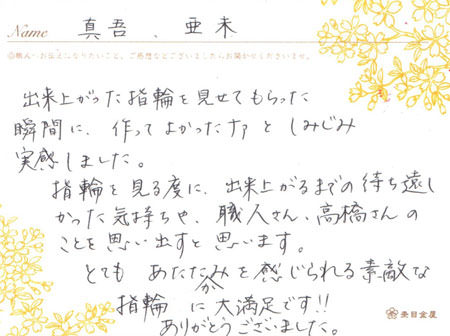 Name 真吾、亜未
◎職人へお伝えになりたいこと、ご感想などございましたらお聞かせくださいませ。
出来上がった指輪を見せてもらった
瞬間に、作ってよかったナァと しみじみ
実感しました。
指輪を見る度に、出来上がるまでの待ち遠し
かった気持ちや、職人さん、高橋さんの
ことを思い出すと思います。
とても あたたみを感じられる素敵な
指輪 に大満足です!!
ありがとうございました。
杢目金屋